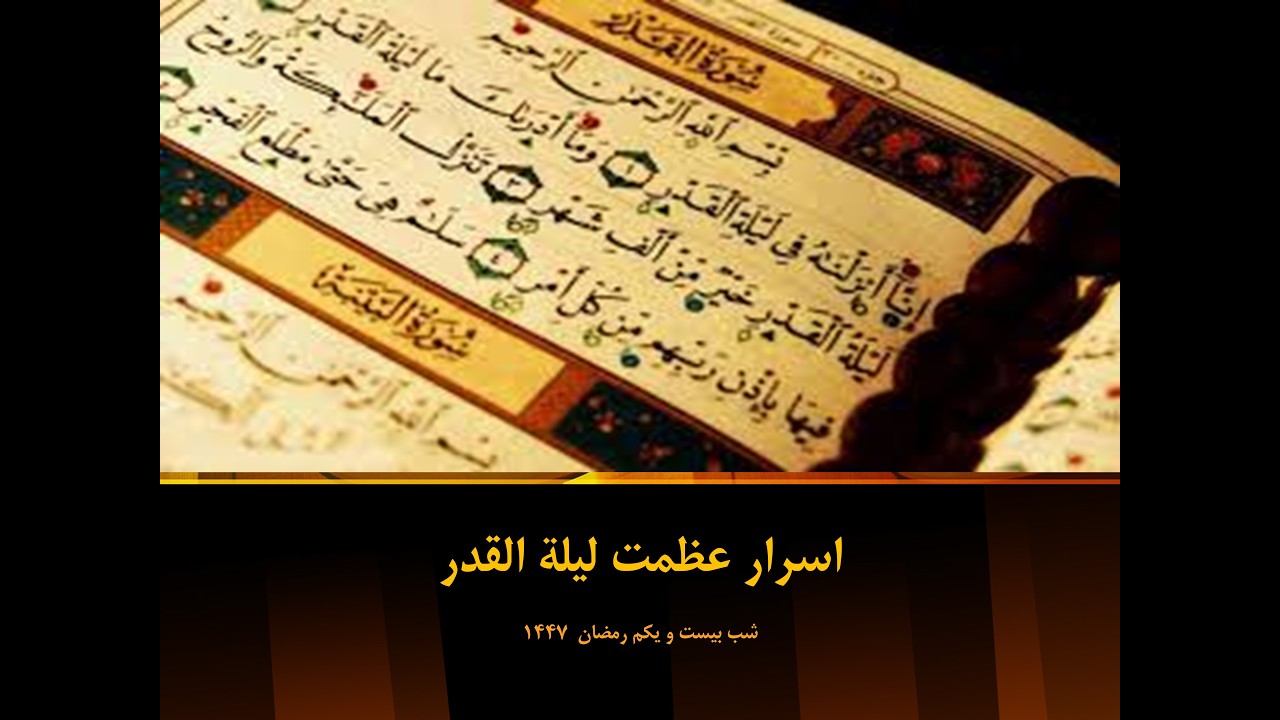 سُورَةُ القَدْرِ
بِسْمِ ٱللَّهِ ٱلرَّحْمَٰنِ ٱلرَّحِيمِ
إِنَّآ أَنزَلْنَٰهُ فِى لَيْلَةِ ٱلْقَدْرِ ١ وَمَآ أَدْرَىٰكَ مَا لَيْلَةُ ٱلْقَدْرِ
لَيْلَةُ ٱلْقَدْرِ خَيْرٌ مِّنْ أَلْفِ شَهْرٍ ٣ تَنَزَّلُ ٱلْمَلَٰٓئِكَةُ وَٱلرُّوحُ
فِيهَا بِإِذْنِ رَبِّهِم مِّن كُلِّ أَمْرٍ ٤ سَلَٰمٌ هِىَ حَتَّىٰ مَطْلَعِ ٱلْفَجْرِ
سُورَةُ البَيِّنَةِ
بِسْمِ ٱللَّهِ ٱلرَّحْمَٰنِ ٱلرَّحِيمِ
اسرار عظمت ليلة القدر
شب بیست و یکم رمضان ۱۴۴۷